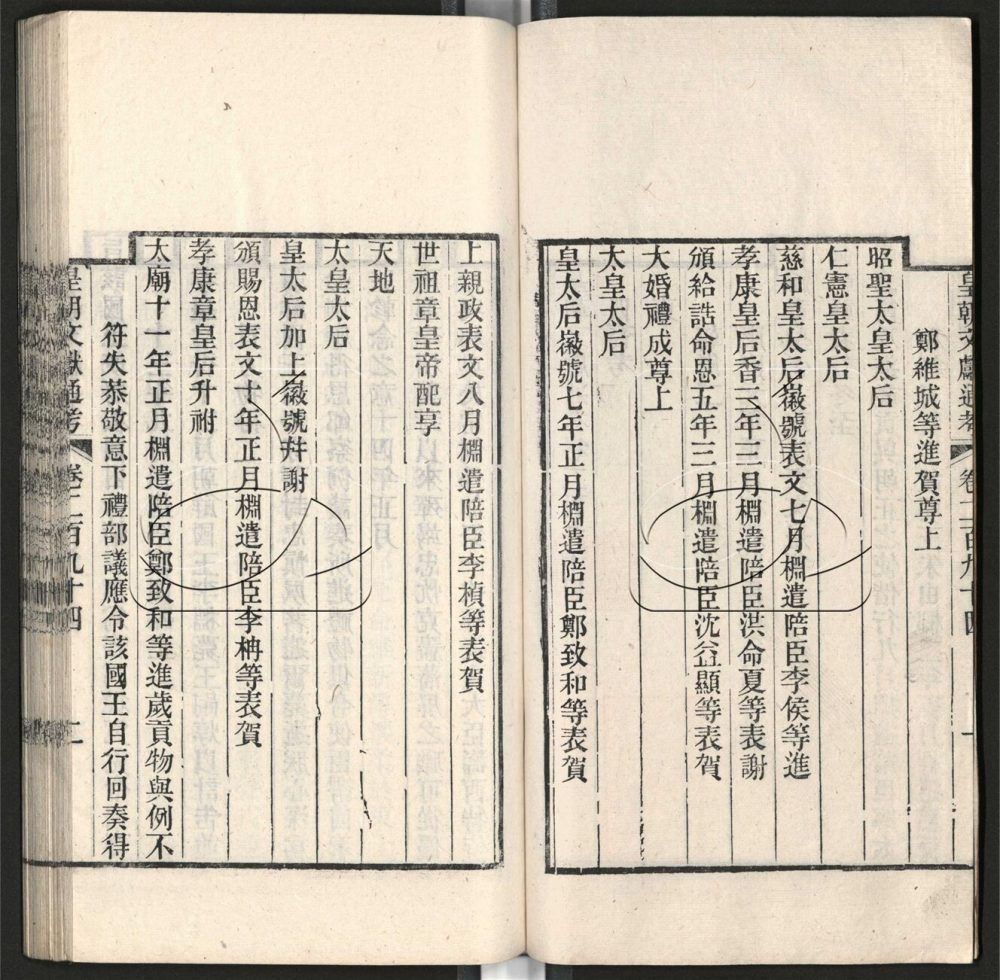 皇朝文獻通考 卷二百九十四 一
鄭維城等進賀尊上
昭聖太皇太后
仁憲皇太后
慈和皇太后徽號表文七月棩遣陪臣李侯等進
孝康皇后香三年三月棩遣陪臣洪命夏等表謝
頒給誥命恩五年三月棩遣陪臣沈益顯等表賀
大婚禮成尊上
太皇太后
皇太后徽號七年正月棩遣陪臣鄭致和等表賀
上親政表文八月棩遣陪臣李楨等表賀
世祖章皇帝配享
天地
太皇太后
皇太后加上徽號幷謝
頒賜恩表文十年正月棩遣陪臣李枏等表賀
孝康章皇后升祔
太廟十一年正月棩遣陪臣鄭致和等進歲貢物與例不
符失恭敬意下禮部議應令該國王自行回奏得
皇朝文獻通考 卷二百九十四 二